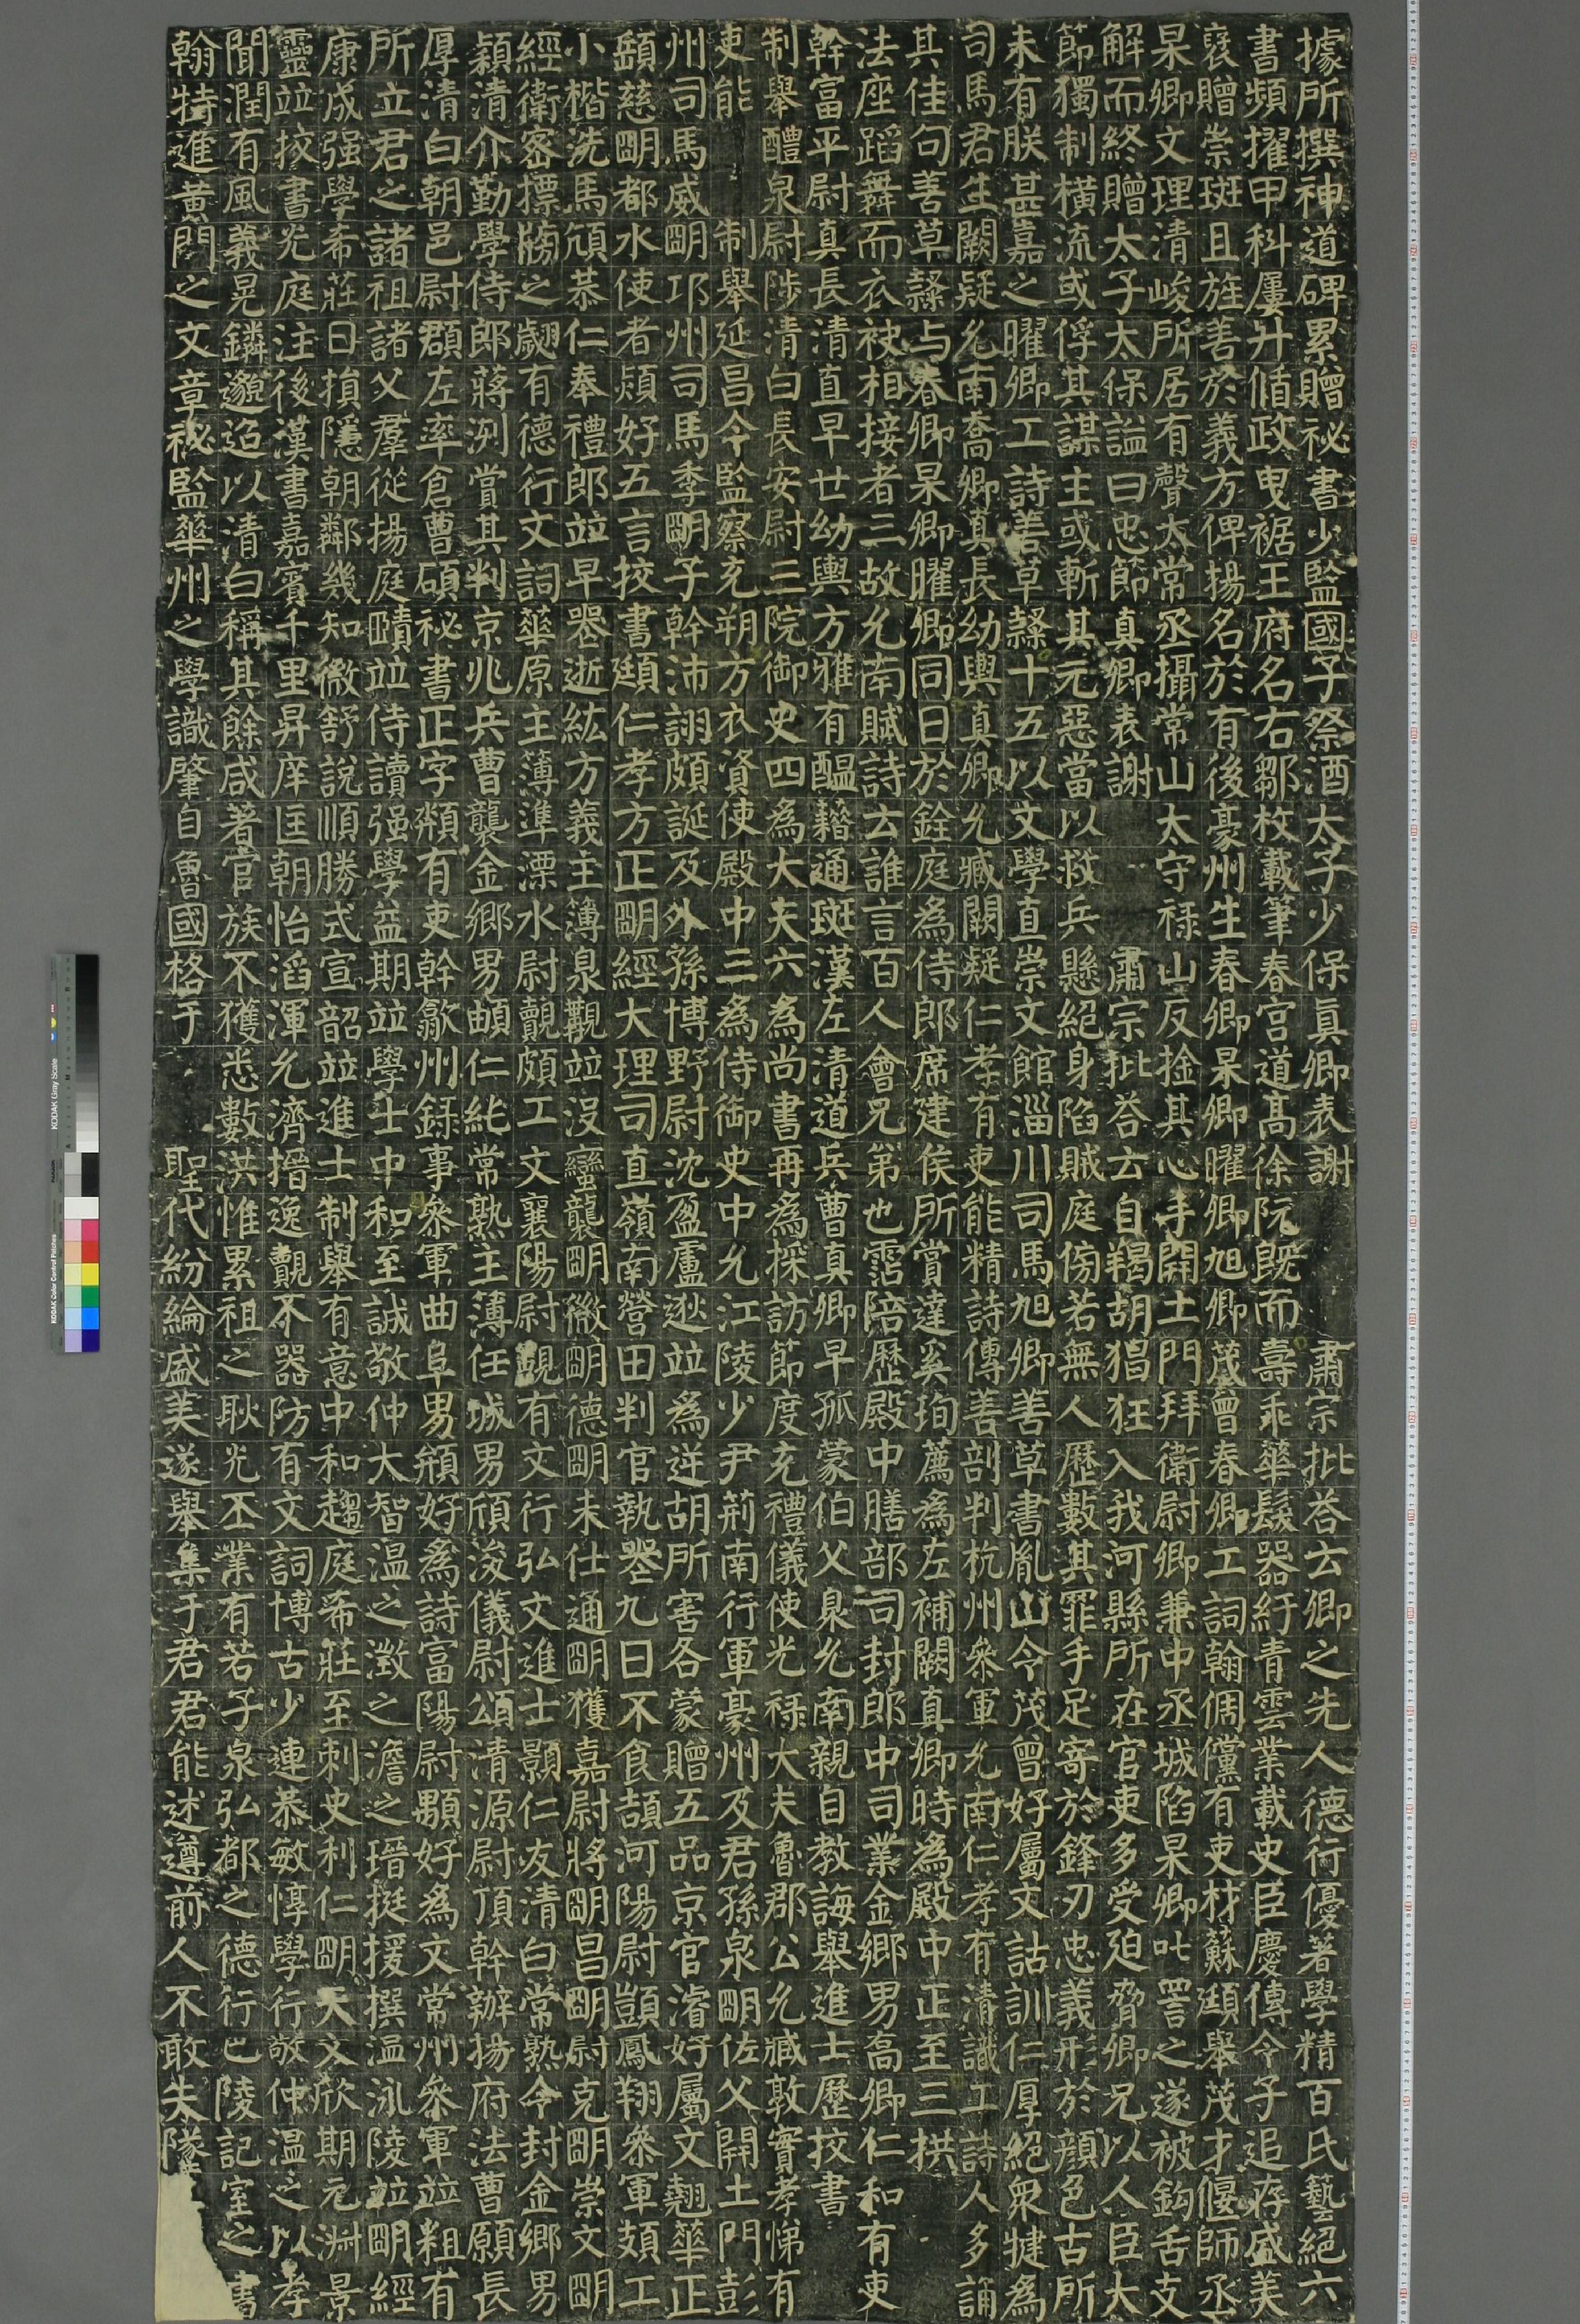 據所撰神道碑累贈祕書少監國子祭酒太子少保真卿表謝 肅宗批荅云卿之先人德行優著學精百氏藝絕六
書頻擢甲科屢升循政曳裾王府名右鄒枚載筆春宮道高徐阮既而壽乖華髮器紆青雲業載史臣慶傳令子追存盛美
襃贈崇班且旌善於義方俾揚名於有後豪州生春卿杲卿曜卿旭卿茂曾春卿工詞翰倜儻有吏材蘇頲舉茂才偃師丞
杲卿文理清峻所居有聲太常丞攝常山太守祿山反捦其心手開土門拜衛尉卿兼中丞城陷杲卿叱詈之遂被鈎舌支
解而終贈太子太保謚曰忠節真卿表謝 肅宗批荅云自羯胡猖狂入我河縣所在官吏多受迫脅卿兄以人臣大
節獨制橫流或俘其謀主或斬其元惡當以救兵懸絕身陷賊庭傍若無人歷數其罪手足寄於鋒刃忠義形於顏色古所
未有朕甚嘉之曜卿工詩善草隸十五以文學直崇文館淄川司馬旭卿善草書胤山令茂曾好屬文詁訓仁厚絕衆犍為
司馬君生闕疑允南喬卿真長幼輿真卿允臧闕疑仁孝有吏能精詩傳善剖判杭州參軍允南仁孝有清識工詩人多誦
其佳句善草隸与春卿杲卿曜卿同日於銓庭為侍郎席建侯所賞達奚珣薦為左補闕真卿時為殿中正至三拱
法座蹈舞而衣袂相接者三故允南賦詩云誰言百人會兄弟也霑陪歷殿中膳部司封郎中司業金鄉男高卿仁和有吏
幹富平尉真長清直早世幼輿方雅有醞藉通班漢左清道兵曹真卿早孤蒙伯父臮允南親自教誨舉進士歷校書
制舉醴泉尉陟清白長安尉三院御史四為大夫六為尚書再為採訪節度充禮儀使光祿大夫魯郡公允臧敦實孝悌有
吏能 制舉延昌令監察充朔方衣資使殿中三為侍御史中允江陵少尹荊南行軍豪州及君孫泉明佐父開土門彭
州司馬威明邛州司馬季明子幹沛詡頗誕及外孫博野尉沈盈盧逖並為逆胡所害各蒙贈五品京官濬好屬文翹華正
慈明都水使者熲好五言校書頲仁孝方正明經大理司直嶺南營田判官執喪九日不食頡河陽尉顗鳳翔參軍頍工
小楷洗馬頎恭仁奉禮郎並早器逝紘方義主簿泉觀並沒蠻龔明徽明德明未仕通明獲嘉尉將明昌明尉克明崇文明
經衛密摽牓之翽有德行文詞華原主簿準漂水尉覿頗工文襄陽尉覬有文行弘文進士顥仁友清白常熟令封金鄉男
潁清介勤學侍郎蔣洌賞其判京兆兵曹襲金鄉男仁純常熟主簿任城男頎浚儀尉頌清源尉頂幹辦揚府法曹願長
厚清白朝邑尉頵左率倉曹碩祕書正字有吏幹歙州錄事參軍曲阜男頩好為詩富陽尉顒好為文常州參軍並粗有
所立君之諸祖諸父羣從揚庭賾並侍讀强學益期並學士中和至誠敬仲大智溫之澂之澹之瑨挺援撰溫泳陵並明經
康成强學希莊日損隱朝鄰幾知微舒說順勝式宣韶並進士制舉有意中和趨庭希莊至刺史利仁明天文欣期元淑景
靈並校書光庭注後漢書嘉賓千里昇庠匡朝怡滔渾允濟搢逸覿不器防有文詞博古少連恭敏惇學行敬仲溫之以孝
聞潤有風義晃鏻邈迢以清白稱其餘咸著官族不獲悉數洪惟累祖之耿光丕業有若子泉弘都之德行巴陵記室之書
翰特進黃門之文章祕監華州之學識肇自魯國格于 聖代紛綸盛美遂舉集于君君能述遵前人不敢失隊